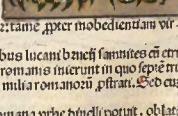 tame ꝓpter inobedientiam vir
bus lucani brucij samnites cū etru
romanis inierunt in quo septē tri
milia romanoꝝ ꝓstrati. Sed cu
potuit, oblat